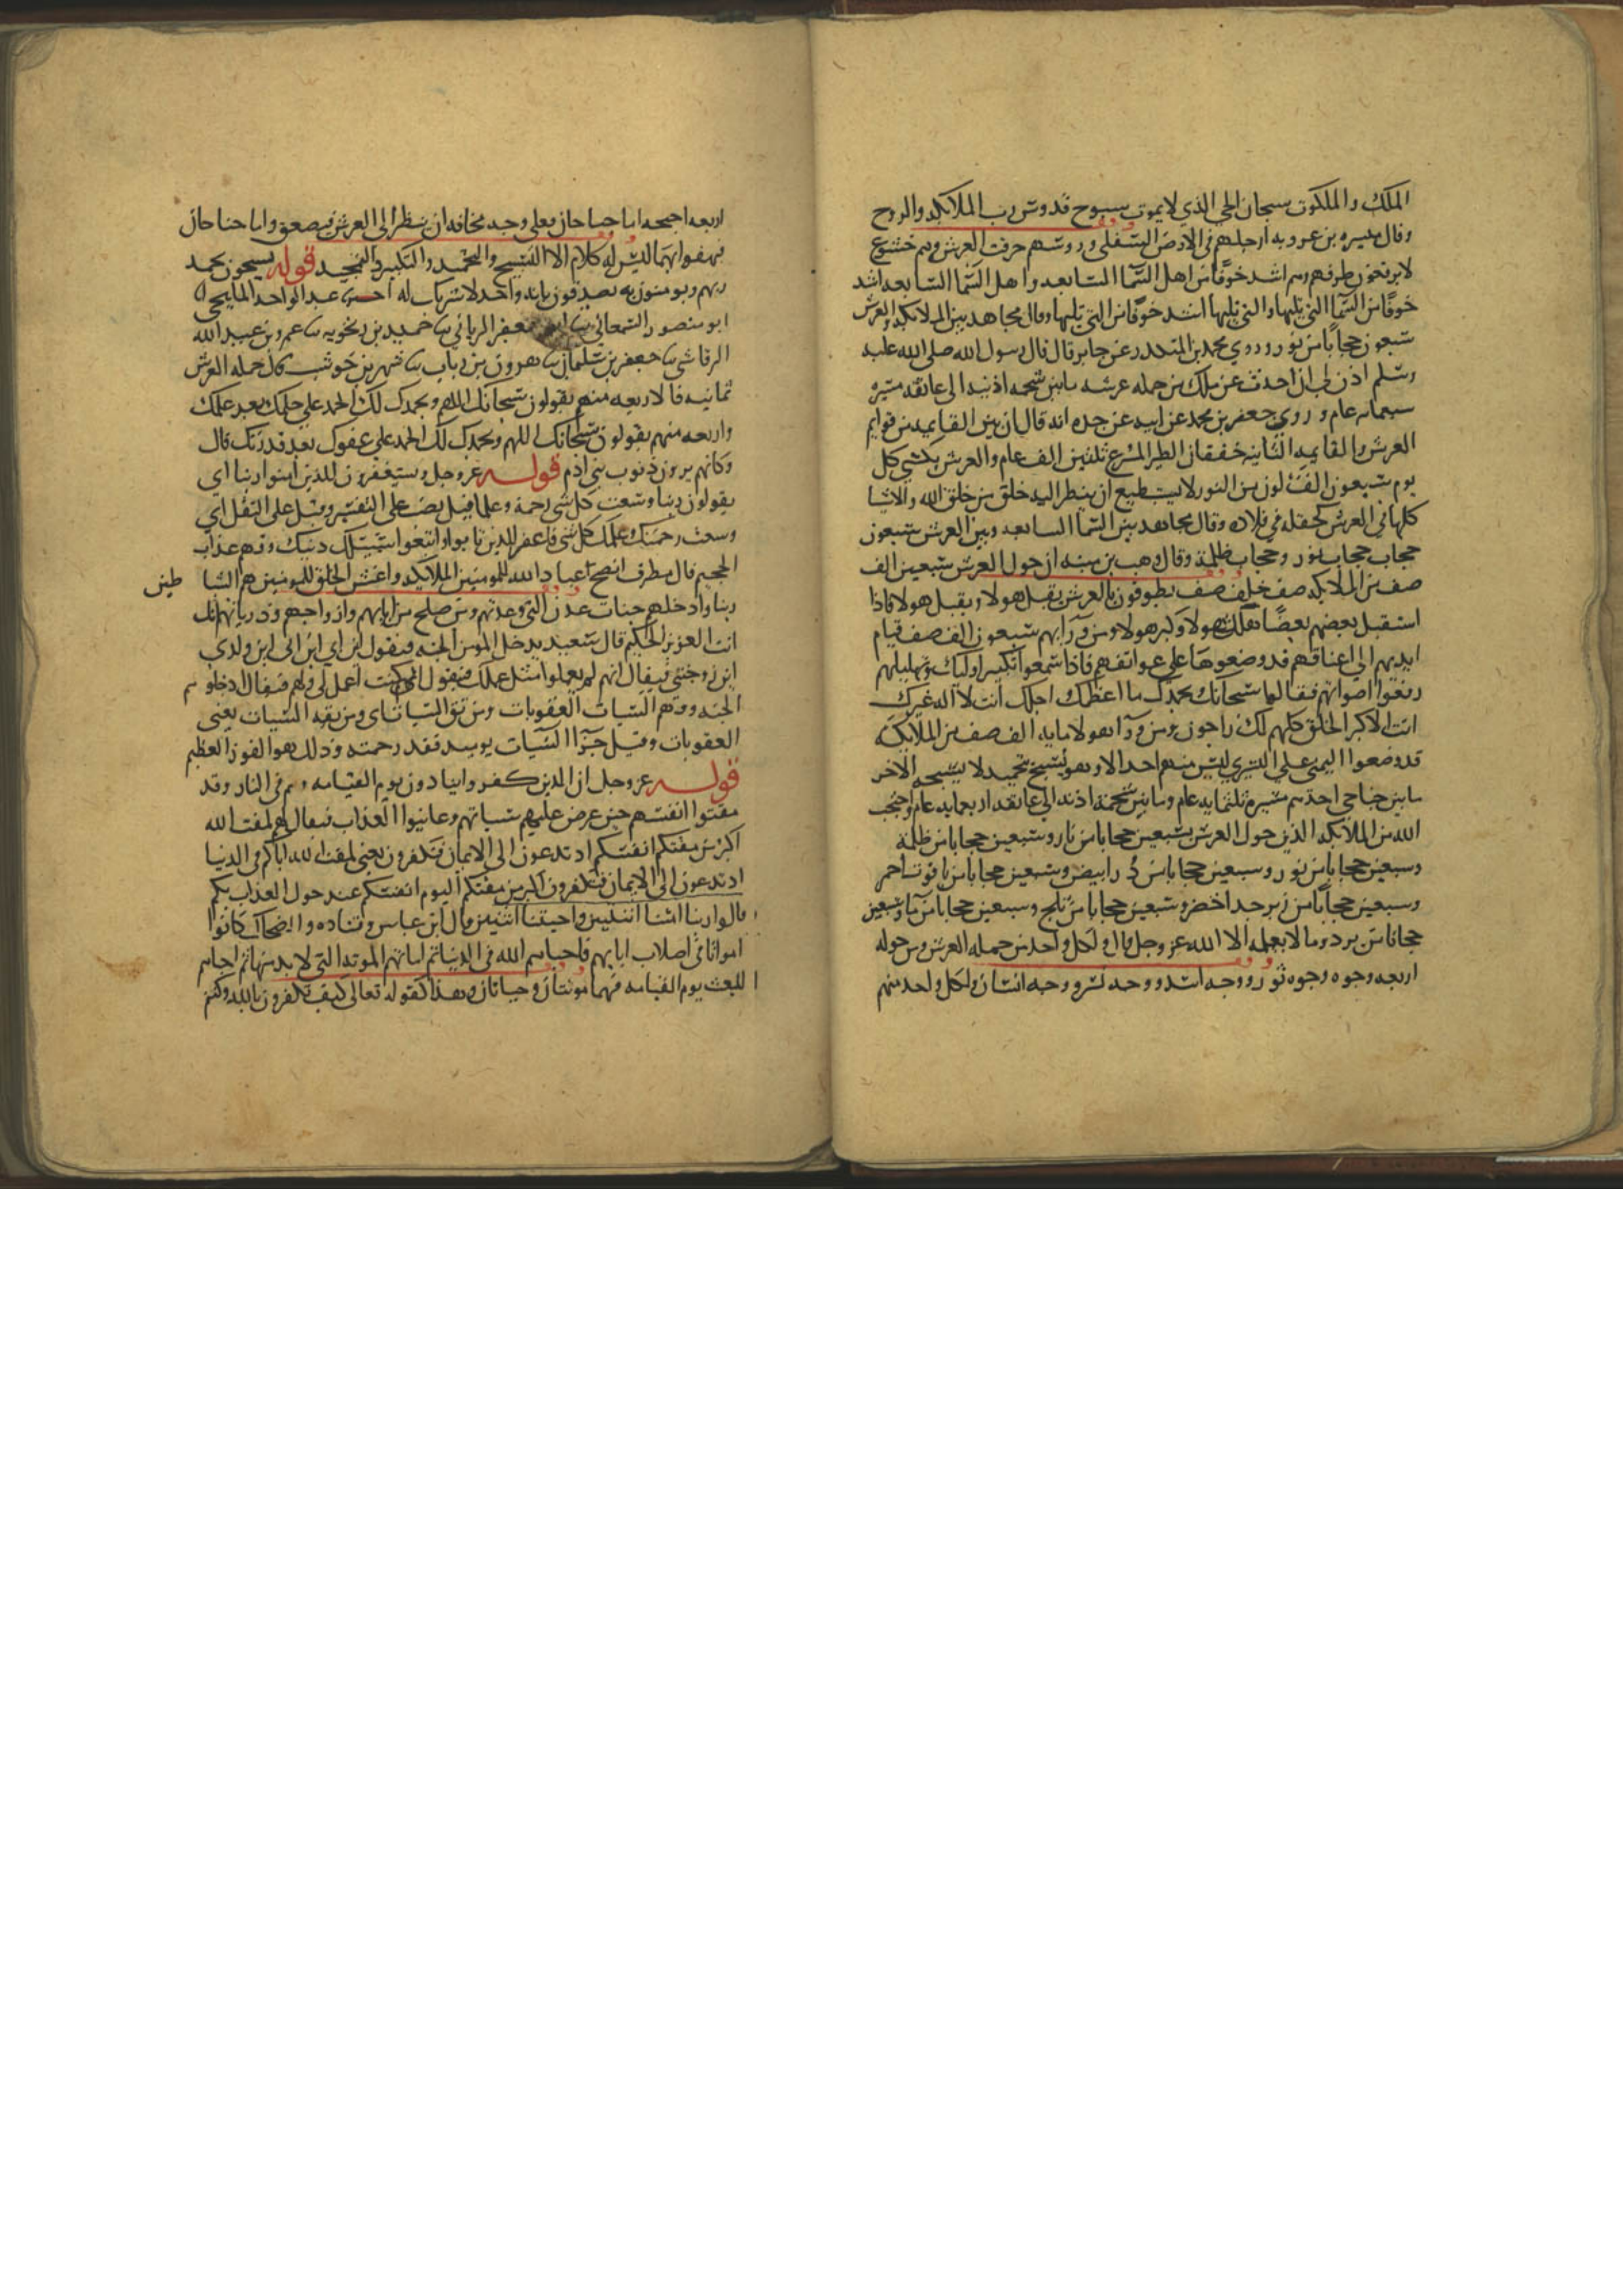 الملك والملكوت سبحان الحي الذي لا يموت سبوح قدوس رب الملائكه والروح
وقال ميسره بن عروبه ارجلهم في الارض السفلى وروسهم خرقت العرش وهم خشوع
لا يرفعون طرفهم وهم اشد خوفا من اهل السما السابعه واهل السما السابعه اشد
خوفا من السما التي تليها والتي تليها اشد خوفا من التي تليها وقال مجاهد بين الملائكه والعرش
سبعون حجابا من نور وروي محمد بن المنكدر عن جابر قال قال رسول الله صلى الله عليه
وسلم اذن لي ان احدث عن ملك من حمله عرشه ما بين شحمه اذنيه الى عاتقه مسيره
سبعمايه عام وروى جعفر بن محمد عن ابيه عن جده انه قال ان بين القايمه من قوايم
العرش والقايمه الثانيه خفقان الطير المسرع ثلثين الف عام والعرش يكسى كل
يوم سبعون الف لون من النور لا يستطيع ان ينظر اليه خلق من خلق الله والاشيا
كلها في العرش كحلقه في فلاه وقال مجاهد بين السما السابعه وبين العرش سبعون
حجاب حجاب نور وحجاب ظلمة وقال وهب بن منبه ان حول العرش سبعين الف
صف من الملائكه صف خلف صف يطوفون بالعرش يقبل هولا ويقبل هولا فاذا
استقبل بعضهم بعضا هلل هولا وكبر هولا ومن ورآيهم سبعون الف صف قيام
ايديهم الى اعناقهم قد وضعوها على عواتقهم فاذا سمعوا تكبير اوليك وتهليلهم
رفعوا اصواتهم فقالوا سبحانك بحمدك ما اعظمك اجلك انت لا اله غيرك
انت الاكبر الخلق كلهم لك راجون ومن ورآ هولا مايه الف صف من الملائكه
قد وضعوا اليمنى على اليسرى ليس منهم احد الا وهو يسبح بتحميد لا يسبحه الاخر
ما بين جناحي احدهم مسيره ثلثمايه عام وما بين شحمة اذنه الى عاتقه اربعمايه عام واحتجب
الله من الملائكه الذين حول العرش بسبعين حجابا من نار وسبعين حجابا من ظلمة
وسبعين حجابا من نور وسبعين حجابا من در ابيض وسبعين حجابا من ياقوت احمر
وسبعين حجابا من زبرجد اخضر وسبعين حجابا من ثلج وسبعين حجابا من ما وسبعين
حجابا من برد وما لا يعلمه الا الله عز وجل قال ولكل واحد من حمله العرش ومن حوله
اربعه وجوه وجه ثور ووجه اسد ووجه نسر ووجه انسان ولكل واحد منهم
اربعه اجنحه اما جناحان فعلى وجهه مخافه ان ينظر الى العرش فيصعق واما جناحان
فيهفوا بهما ليس له كلام الا التسبيح والتحميد والتكبير والتمجيد قوله يسبحون بحمد
ربهم ويومنون به يصدقون بانه واحد لا شريك له اخبرنا عبد الواحد المليحي
ابو منصور السمعاني ابو جعفر الرياني حميد بن زنجويه عمرو بن عبد الله
الرقاشي جعفر بن سليمان هرون بن رياب شهر بن حوشب قال حمله العرش
ثمانيه فالاربعه منهم يقولون سبحانك اللهم وبحمدك لك الحمد على حلمك بعد علمك
واربعه منهم يقولون سبحانك اللهم وبحمدك لك الحمد على عفوك بعد قدرتك قال
وكانهم يرون ذنوب بني ادم قوله عز وجل ويستغفرون للذين امنوا ربنا اي
يقولون ربنا وسعت كل شي رحمة وعلما قيل نصب على التفسير وقيل على النقل اي
وسعت رحمتك وعلمك كل شي فاغفر للذين تابوا واتبعوا سبيلك دينك وقهم عذاب
الجحيم قال مطرف انصح عباد الله للمومنين الملايكه واغش الخلق للمومنين هم الشيا طين
ربنا وادخلهم جنات عدن التي وعدتهم ومن صلح من ابايهم وازواجهم وذرياتهم انك
انت العزيز الحكيم قال سعيد يدخل المومن الجنه فيقول اين ابي اين امي اين ولدي
اين زوجتي فيقال انهم لم يعملوا مثل عملك فيقول اني كنت اعمل لي ولهم فيقال ادخلوهم
الجنه وقهم السيات العقوبات ومن تق السيات اي ومن تقه السيات يعني
العقوبات وقيل جزآ السيات يوميد فقد رحمته وذلك هو الفوز العظيم
قوله عز وجل ان الذين كفروا ينادون يوم القيامه وهم في النار وقد
مقتوا انفسهم حين عرض عليهم سياتهم وعاينوا العذاب فيقال لهم لمقت الله
اكبر من مقتكم انفسكم اذ تدعون الى الايمان فتكفرون يعني لمقت الله اياكم في الدنيا
اذ تدعون الى الايمان فتكفرون اكبر من مقتكم اليوم انفسكم عند حول العذاب بكم
قالوا ربنا امتنا اثنتين واحييتنا اثنتين قال ابن عباس وقتاده والضحاك كانوا
امواتا في اصلاب ابايهم فاحياهم الله في الدنيا ثم اماتهم الموته التي لا بد منها ثم احياهم
للبعث يوم القيامه فهما موتتان وحياتان وهذا كقوله تعالى كيف تكفرون بالله وكنتم